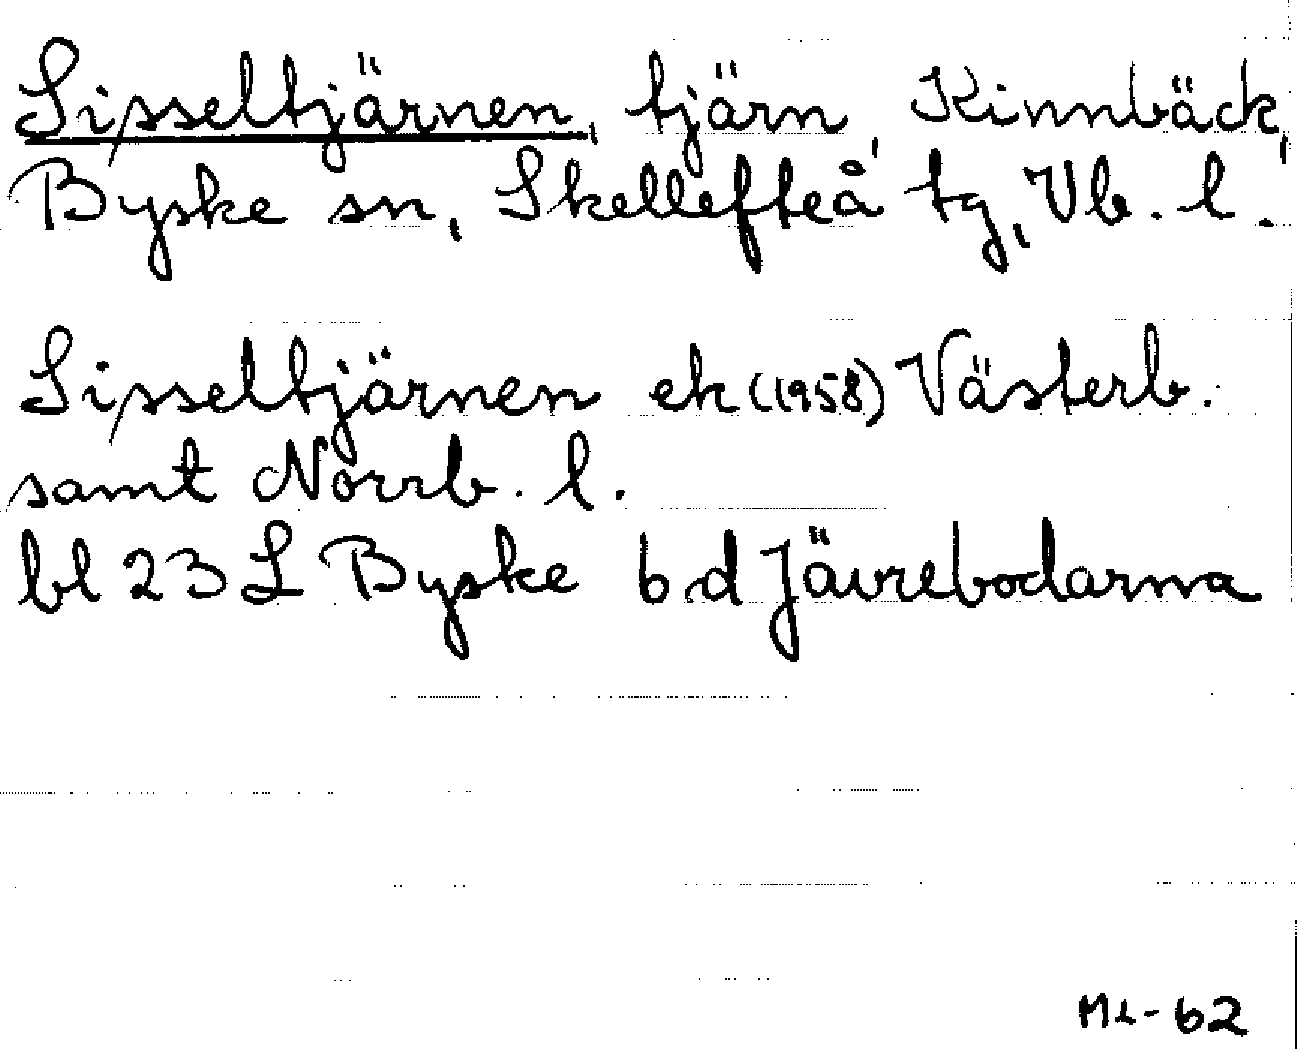 Sisseltjärnen, tjärn, Kinnbäck,
Byske sn, Skellefteå tg, Vb. l.
Sisseltjärnen ek (1958) Västerb.
samt Norrb. l.
bl 23 L Byske 6 d Jävrebodarna
-62